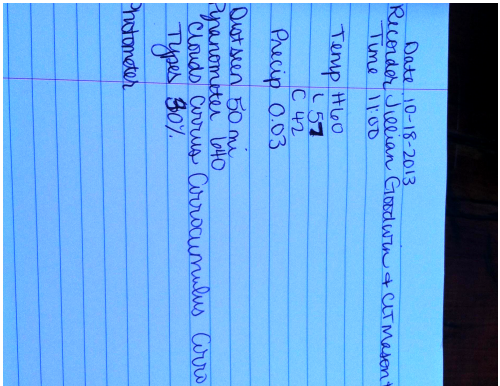 Date 10-18-2013
Recorder Jillian Goodwin +
Time 11:00
Temp H 60
L 57
C 42
Precip 0.03
50 mi
Pyranometer 640
Clouds Cirrus Cirrocumulus Cirro
Types 30%
Photometer